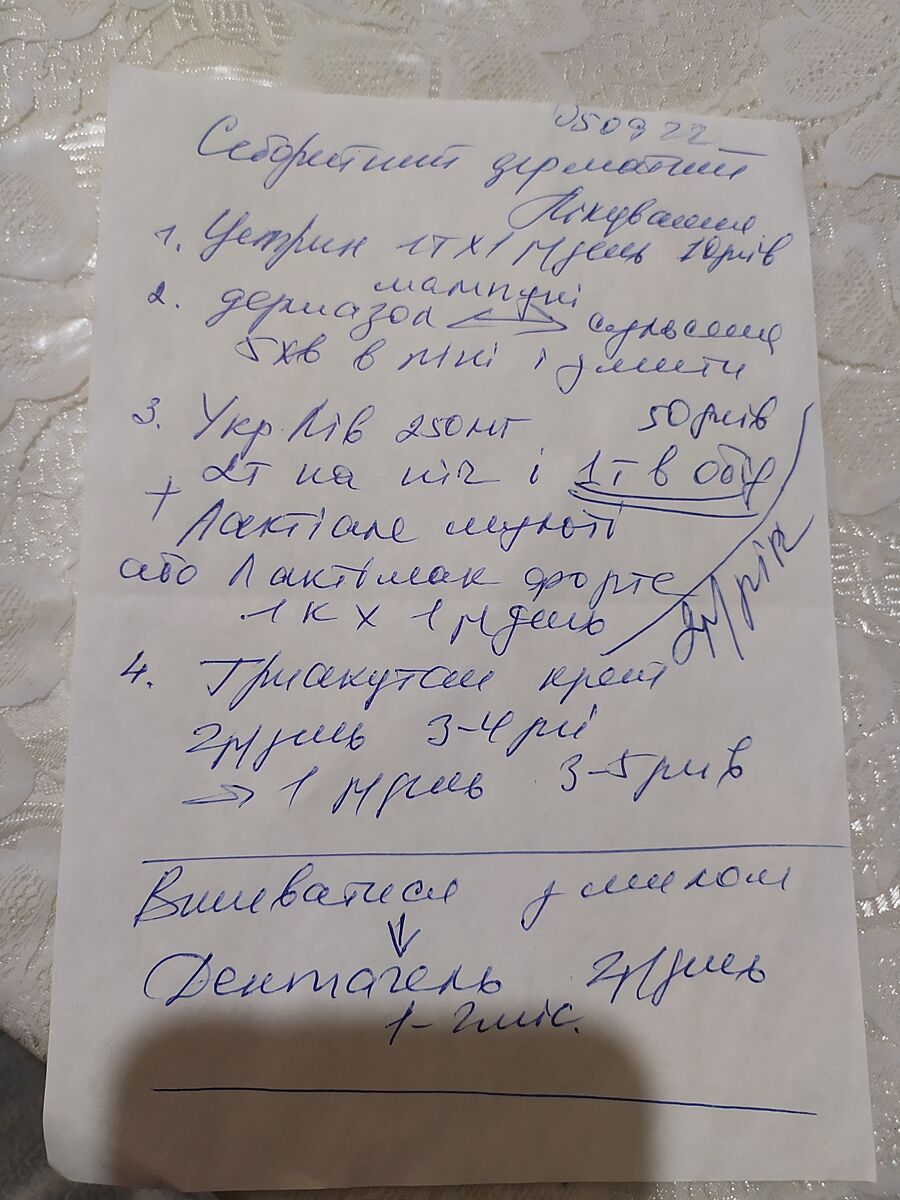 050922
Себорейний дерматит
Лікування
1. Цетрин 1т х 1 р/день 10 днів
шампуні
2. дермазол ⟷ сульсена
5 хв в піні і змити
3. Укр Лів 250 мг 50 днів
2т на ніч і 1т в обід
+ Лактіале мульті
або Лактімак форте
1к х 1 р/день
2р/рік
4. Триакутан крем
2р/день 3-4 дні
→ 1 р/день 3-5 днів
Вмиватися з милом
↓
Дентагель 2р/день
1-2 міс.